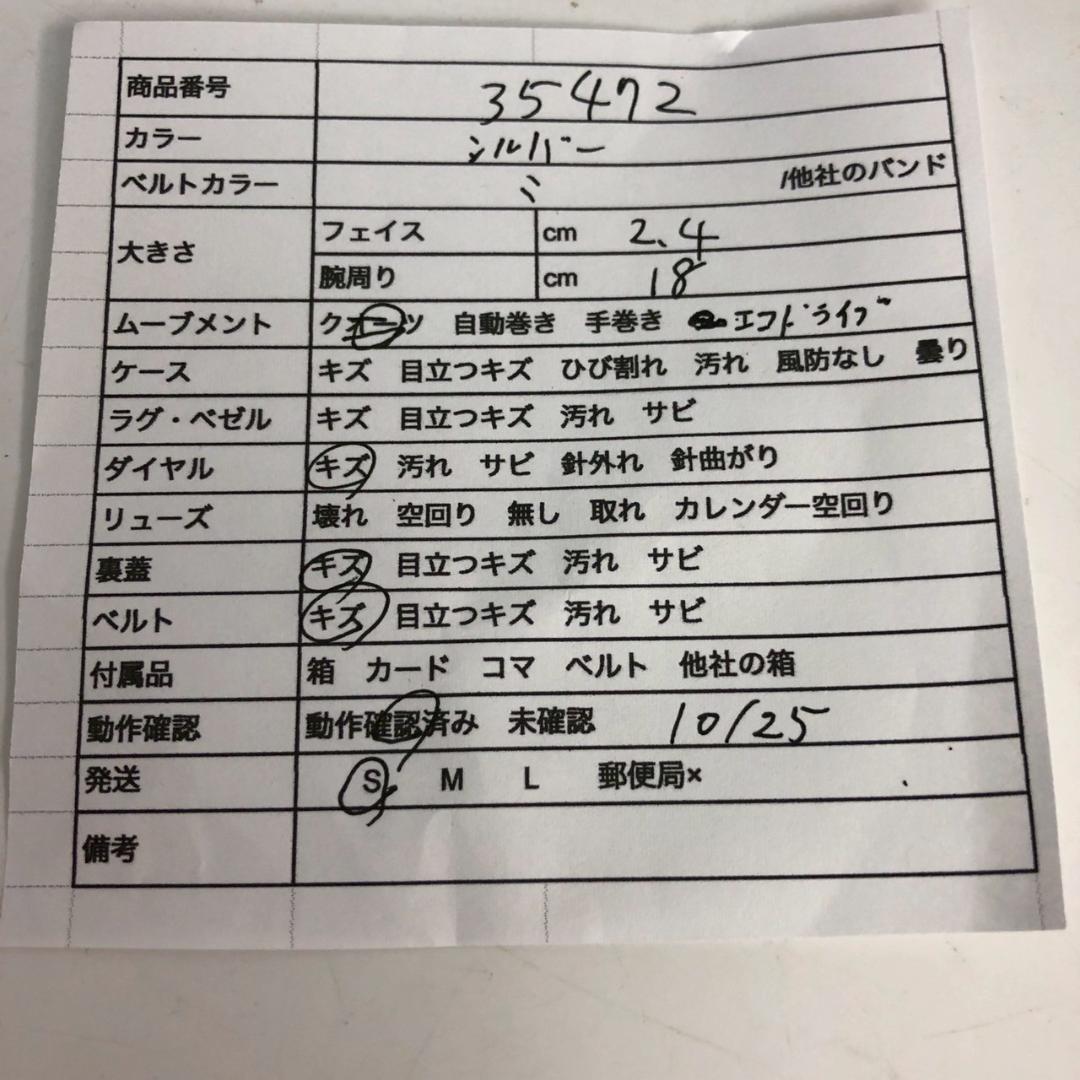 商品番号 35472
カラー シルバー
ベルトカラー 〃 /他社のバンド
大きさ フェイス cm 2.4
腕周り cm 18
ムーブメント クオーツ 自動巻き 手巻き エコドライブ
ケース キズ 目立つキズ ひび割れ 汚れ 風防なし 曇り
ラグ・ベゼル キズ 目立つキズ 汚れ サビ
ダイヤル キズ 汚れ サビ 針外れ 針曲がり
リューズ 壊れ 空回り 無し 取れ カレンダー空回り
裏蓋 キズ 目立つキズ 汚れ サビ
ベルト キズ 目立つキズ 汚れ サビ
付属品 箱 カード コマ ベルト 他社の箱
動作確認 動作確認済み 未確認 10/25
発送 S M L 郵便局×
備考